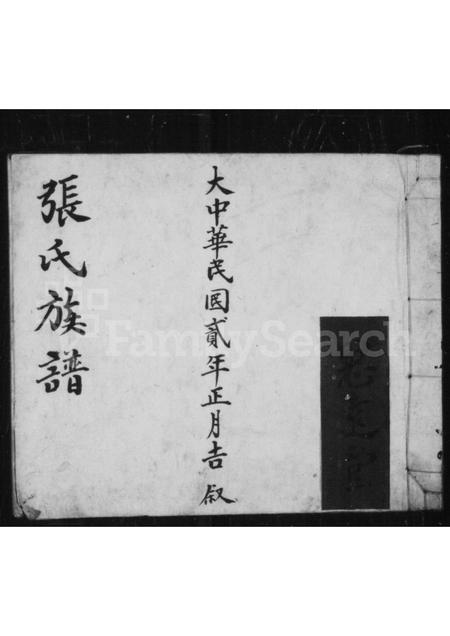 大中華民国貳年正月吉叙
張氏族譜
FamilySearch